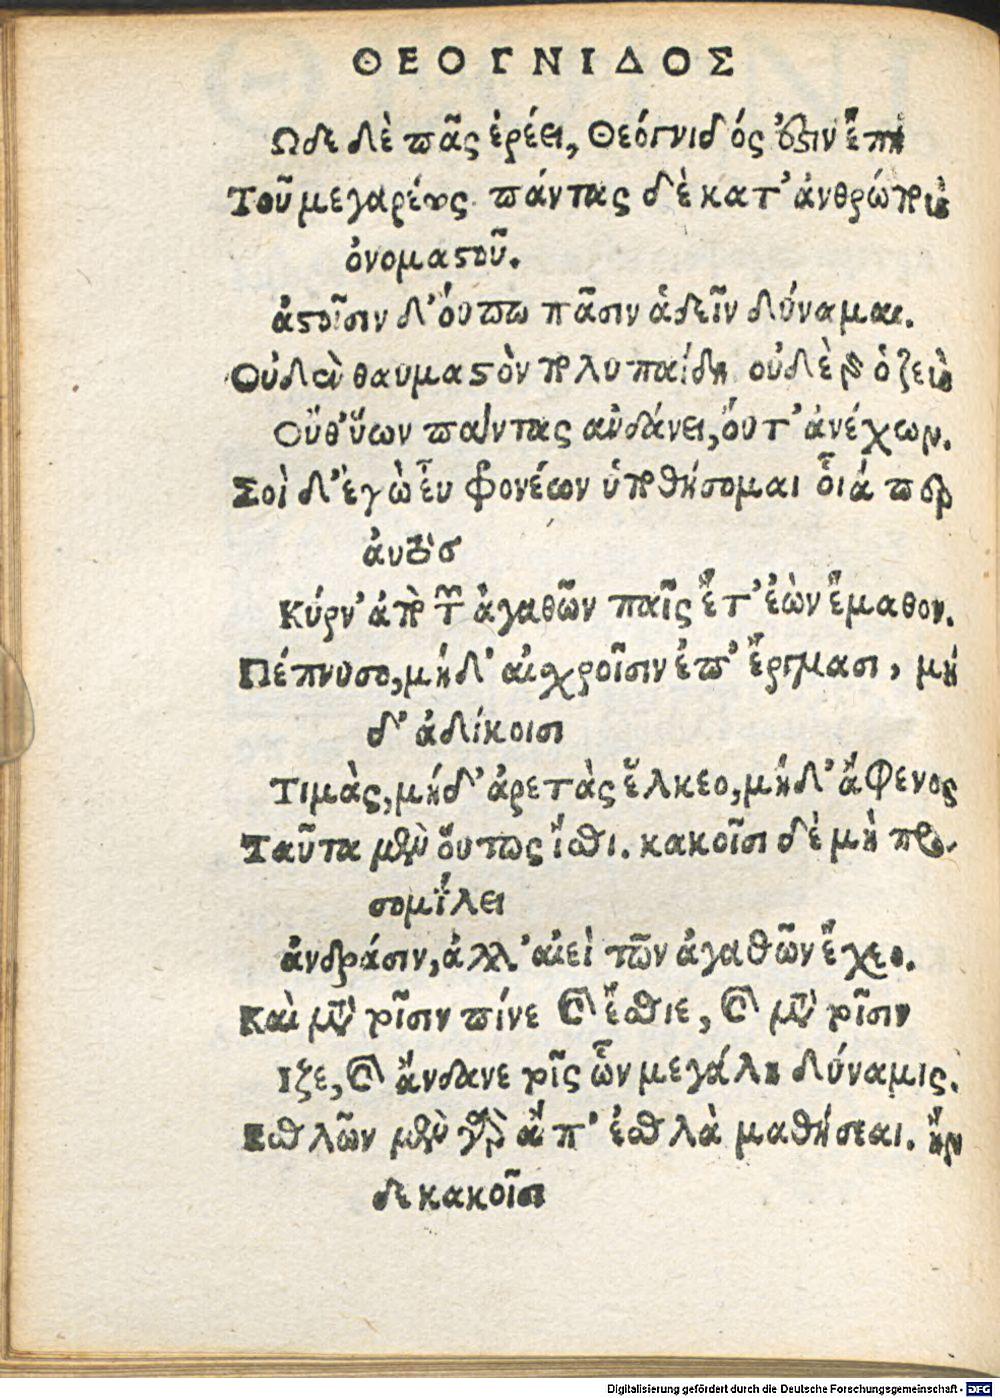 ΘΕΟΓΝΙΔΟΣ
Ωδε δὲ πᾶς ἐρέει, Θεόγνιδός ἐστιν ἔπη
Τοῦ μεγαρέως. πάντας δὲ κατ' ἀνθρώπους
ὀνομαστοῦ.
ἀστοῖσιν δ' ὄυπω πᾶσιν ἁδεῖν δύναμαι.
Οὐδὲν θαυμαστὸν πολυπαίδη οὐδὲ γὰρ ὁ ζεὺς
Οὔθ' ὕων πάντας ἁνδάνει, ὄυτ' ἀνέχων.
Σοὶ δ' ἐγὼ ἐῦ φρονέων ὑποθήσομαι οἷά περ
ἀυτὸς
Κύρν' ἀπὸ τῶν ἀγαθῶν παῖς ἔτ' ἐὼν ἔμαθον.
Πέπνυσο, μήδ' αἰσχροῖσιν ἐπ' ἔργμασι, μή
δ' ἀδίκοισι
Τιμὰς, μήδ' ἀρετὰς ἕλκεο, μήδ' ἄφενος
Ταῦτα μὲν ὅυτως ἴσθι. κακοῖσι δὲ μὴ προ-
σομίλει
ἀνδράσιν, ἀλλ' αἰεὶ τῶν ἀγαθῶν ἔχεο.
Καὶ μετὰ τοῖσιν πίνε καὶ ἔσθιε, καὶ μετὰ τοῖσιν
Ιζε, καὶ ἅνδανε τοῖς ὧν μεγάλη δύναμις.
Εσθλῶν μὲν γὰρ ἄπ' ἐσθλὰ μαθήσεαι. ἢν
δε κακοῖσι
Digitalisierung gefördert durch die Deutsche Forschungsgemeinschaft - DFG